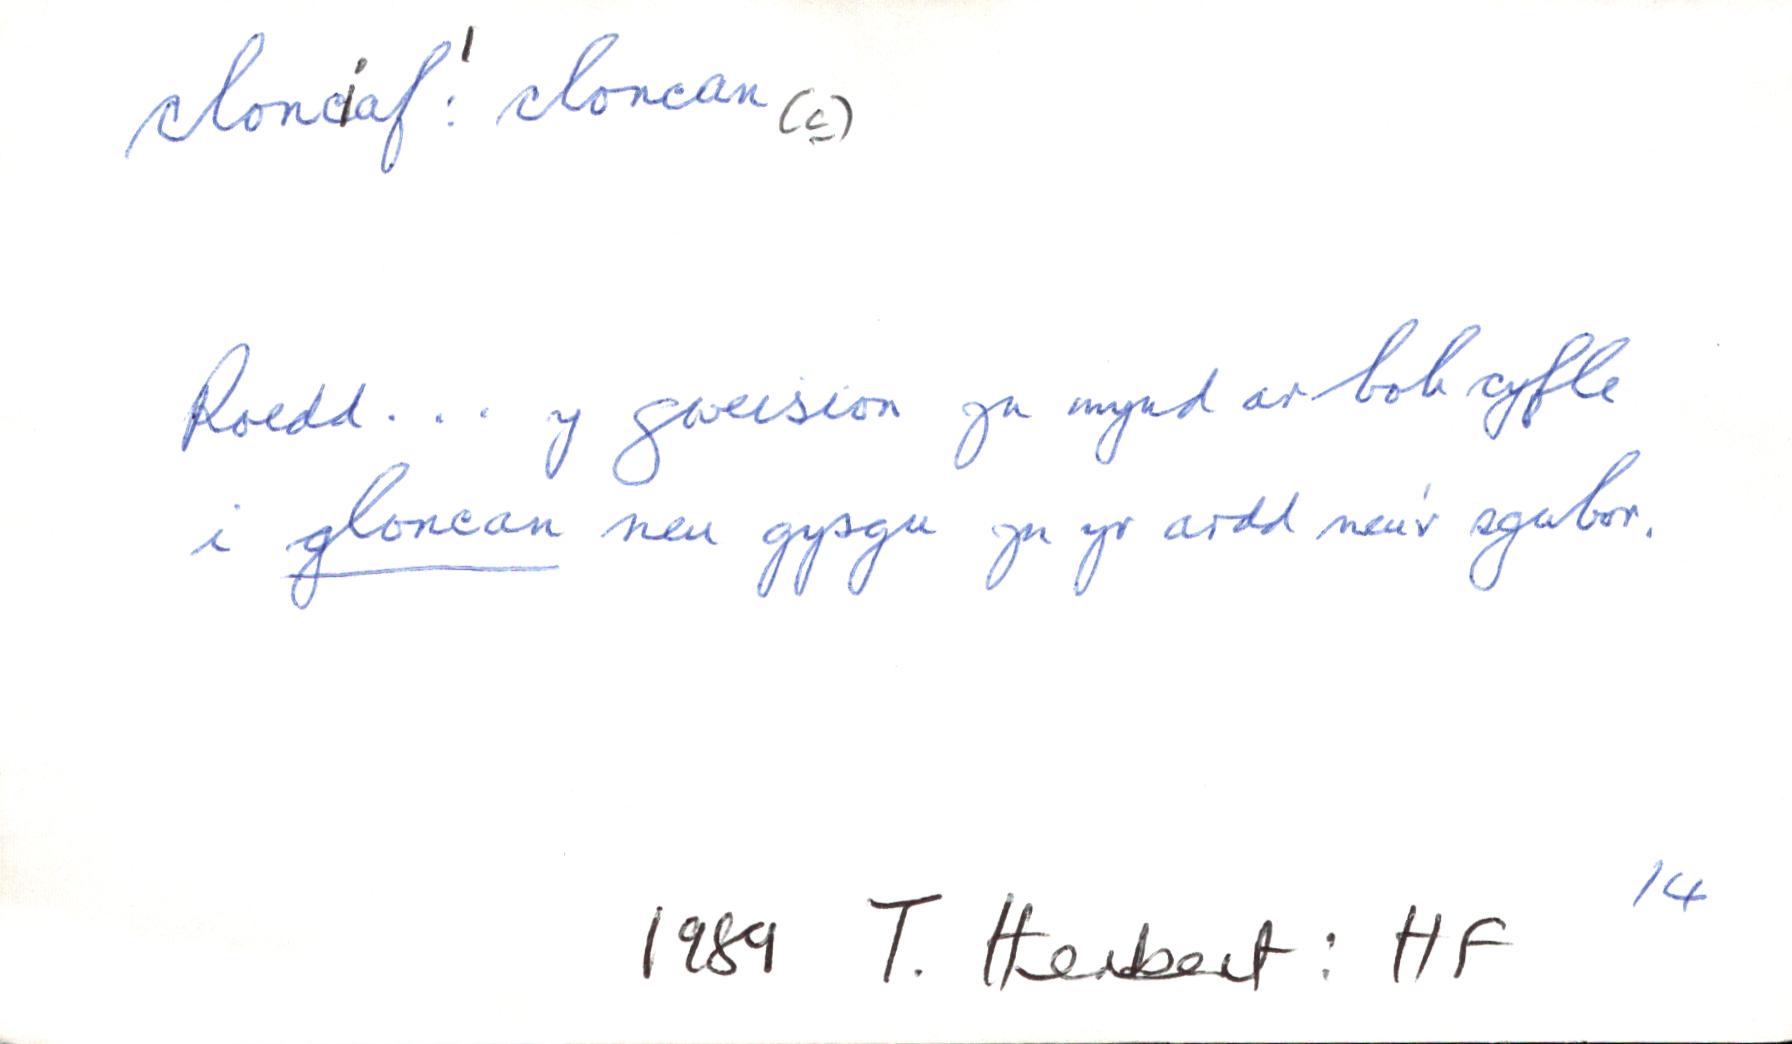 clonciaf¹: cloncan (c)
Roedd . . . y gweision yn mynd ar bob cyfle
i gloncan neu gysgu yn yr ardd neu'r sgubor.
14
1989 T. Herbert: HF